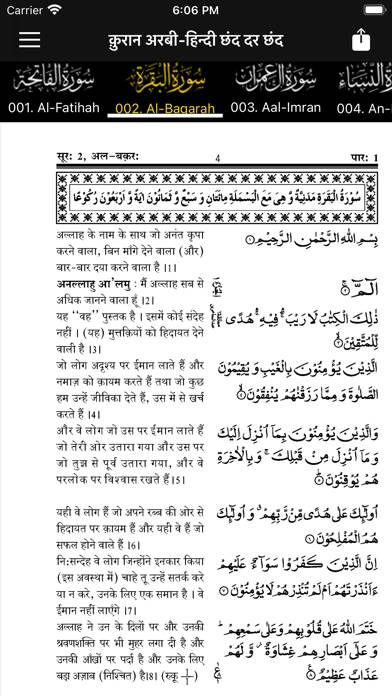 Carrier 6:06 PM
क़ुरान अरबी-हिन्दी छंद दर छंद
سورة الفاتحة سورة البقرة سورة آل عمران النساء
001. Al-Fatihah 002. Al-Baqarah 003. Aal-Imran 004. An-
सूर: 2, अल-बक़र: 4 पार: 1
سُوْرَةُ الْبَقَرَةِ مَدَنِيَّةٌ وَّ هِيَ مَعَ الْبَسْمَلَةِ مِائَتَانِ وَ سَبْعٌ وَّ ثَمَانُوْنَ اٰيَةً وَّ اَرْبَعُوْنَ رُكُوْعًا
अल्लाह के नाम के साथ जो अनंत कृपा
करने वाला, बिन मांगे देने वाला (और)
बार-बार दया करने वाला है ।1।
अनल्लाहु आ'लमु : मैं अल्लाह सब से
अधिक जानने वाला हूँ ।2।
यह ''वह'' पुस्तक है । इसमें कोई संदेह
नहीं । (यह) मुत्तक़ियों को हिदायत देने
वाली है ।3।
जो लोग अदृश्य पर ईमान लाते हैं और
नमाज़ को क़ायम करते हैं तथा जो कुछ
हम उन्हें जीविका देते हैं, उस में से खर्च
करते हैं ।4।
और वे लोग जो उस पर ईमान लाते हैं
जो तेरी ओर उतारा गया और उस पर
जो तुझ से पूर्व उतारा गया, और वे
परलोक पर विश्वास रखते हैं ।5।
यही वे लोग हैं जो अपने रब्ब की ओर से
हिदायत पर क़ायम हैं और यही वे हैं जो
सफल होने वाले हैं ।6।
नि:सन्देह वे लोग जिन्होंने इनकार किया
(इस अवस्था में) चाहे तू उन्हें सतर्क करे
या न करे, उनके लिए एक समान है । वे
ईमान नहीं लाएँगे ।7।
अल्लाह ने उन के दिलों पर और उनकी
श्रवणशक्ति पर भी मुहर लगा दी है और
उनकी आँखों पर पर्दा है और उनके लिए
बड़ा अज़ाब (निश्चित) है।8। (रुकू 1/1)
بِسْمِ اللّٰهِ الرَّحْمٰنِ الرَّحِيْمِ ۝
الٓمّٓ ۝
ذٰلِكَ الْكِتٰبُ لَا رَيْبَ ۛ فِيْهِ ۛ هُدًى
لِّلْمُتَّقِيْنَ ۝
الَّذِيْنَ يُؤْمِنُوْنَ بِالْغَيْبِ وَيُقِيْمُوْنَ
الصَّلٰوةَ وَ مِمَّا رَزَقْنٰهُمْ يُنْفِقُوْنَ ۝
وَالَّذِيْنَ يُؤْمِنُوْنَ بِمَآ اُنْزِلَ اِلَيْكَ
وَمَآ اُنْزِلَ مِنْ قَبْلِكَ ۚ وَبِالْاٰخِرَةِ
هُمْ يُوْقِنُوْنَ ۝
اُولٰٓئِكَ عَلٰى هُدًى مِّنْ رَّبِّهِمْ ۙ وَ اُولٰٓئِكَ
هُمُ الْمُفْلِحُوْنَ ۝
اِنَّ الَّذِيْنَ كَفَرُوْا سَوَآءٌ عَلَيْهِمْ
ءَاَنْذَرْتَهُمْ اَمْ لَمْ تُنْذِرْهُمْ لَا يُؤْمِنُوْنَ ۝
خَتَمَ اللّٰهُ عَلٰى قُلُوْبِهِمْ وَعَلٰى سَمْعِهِمْ ؕ
وَ عَلٰٓى اَبْصَارِهِمْ غِشَاوَةٌ ۫ وَّ لَهُمْ
عَذَابٌ عَظِيْمٌ ۝